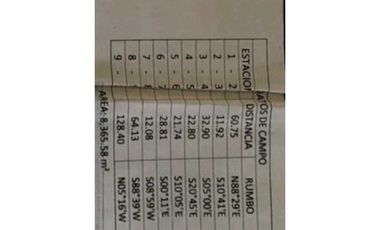 DATOS DE CAMPO
ESTACION DISTANCIA RUMBO
1 - 2 60.75 N88°29'E
2 - 3 11.92 S10°41'E
3 - 4 32.90 S05°00'E
4 - 5 22.80 S20°45'E
5 - 6 21.74 S10°05'E
6 - 28.81 S00°11'E
7 - 8 12.08 S08°59'W
8 - 64.13 S88°39'W
9 - 128.40 N05°16'W
AREA: 8,365.58 m²